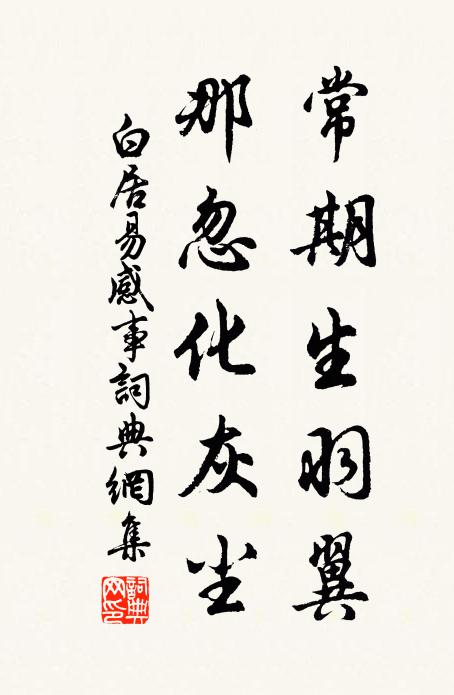 常期生羽翼
那忽化灰尘
白居易感事詞典網集
詞典網印